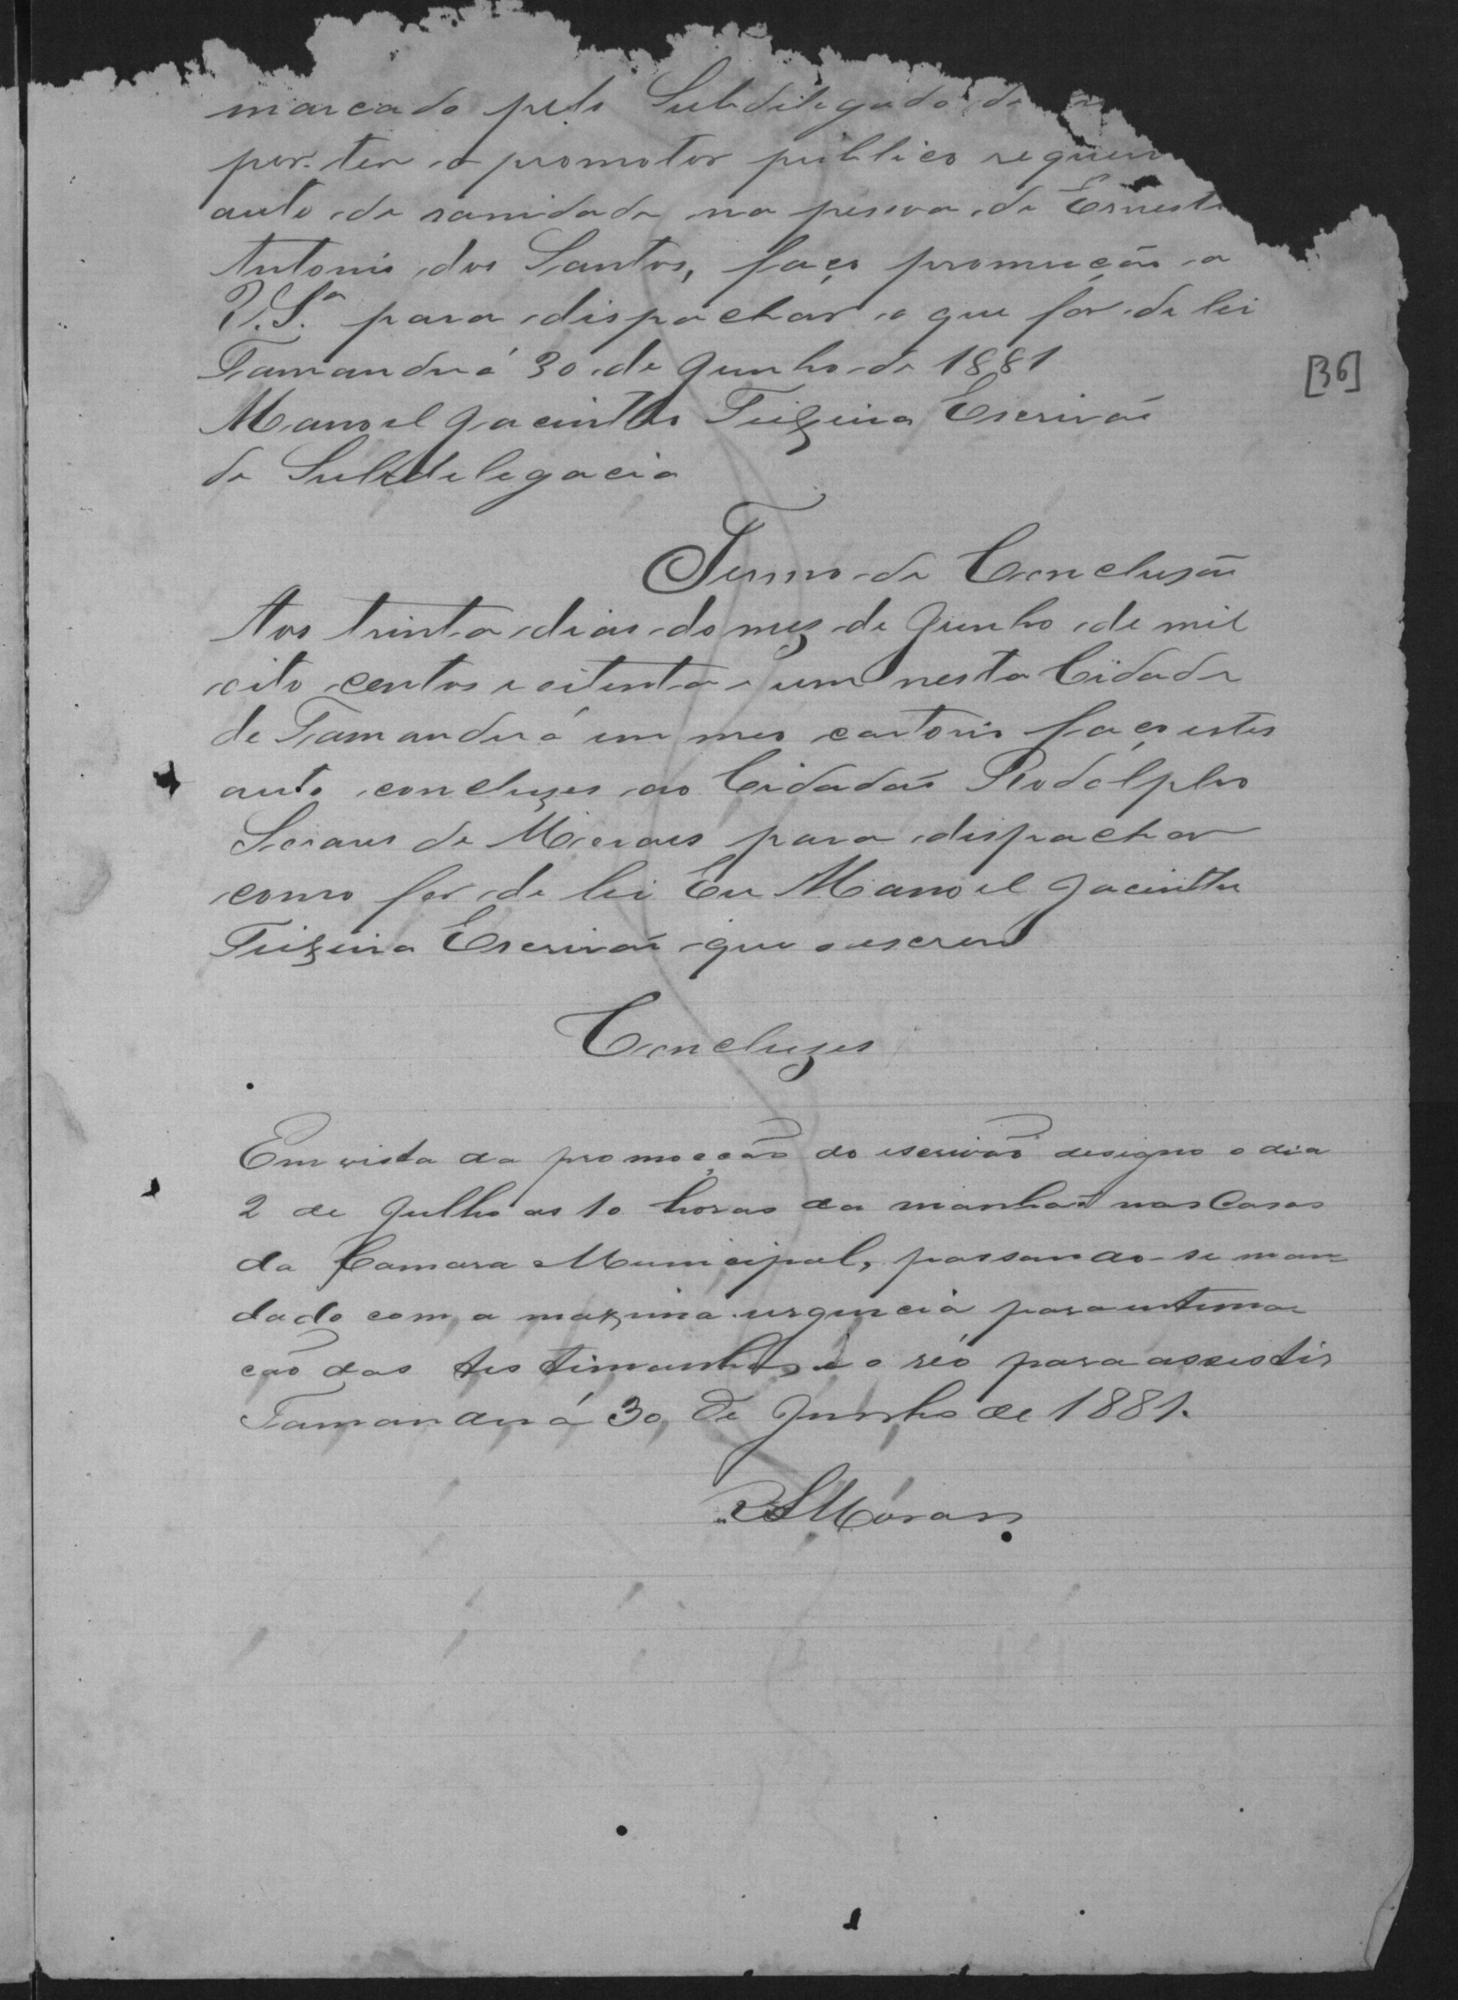 marcado pelo Subdelegado de
por ter o promotor publico requeri
auto de sanidade na pessoa de Ernesto
Antonio dos Santos, faço promução a
V.S.ª para dispachar o que fôr de lei
Tamanduá 30 de Junho de 1881
Manoel Jacintho Teixeira Escrivão
da Subdelegacia
Termo de Concluzão
Aos trinta dias do mez de Junho de mil
oito centos e oitenta e um nesta Cidade
de Tamanduá em meo cartorio faço estes
auto concluzos ao Cidadão Rodolpho
Soares de Moraes para dispachar
como for de lei Eu Manoel Jacintho
Teixeira Escrivão que o escrevi
Concluzos
Em vista da promoção do escrivão designo o dia
2 de Julho as 10 horas da manhã nas Casas
da Camara Municipal, passando-se man
dado com a maxima urgencia para intima
ção das testimunhas e o réo para assistir
Tamanduá 30 de Junho de 1881.
RSMoraes
[36]